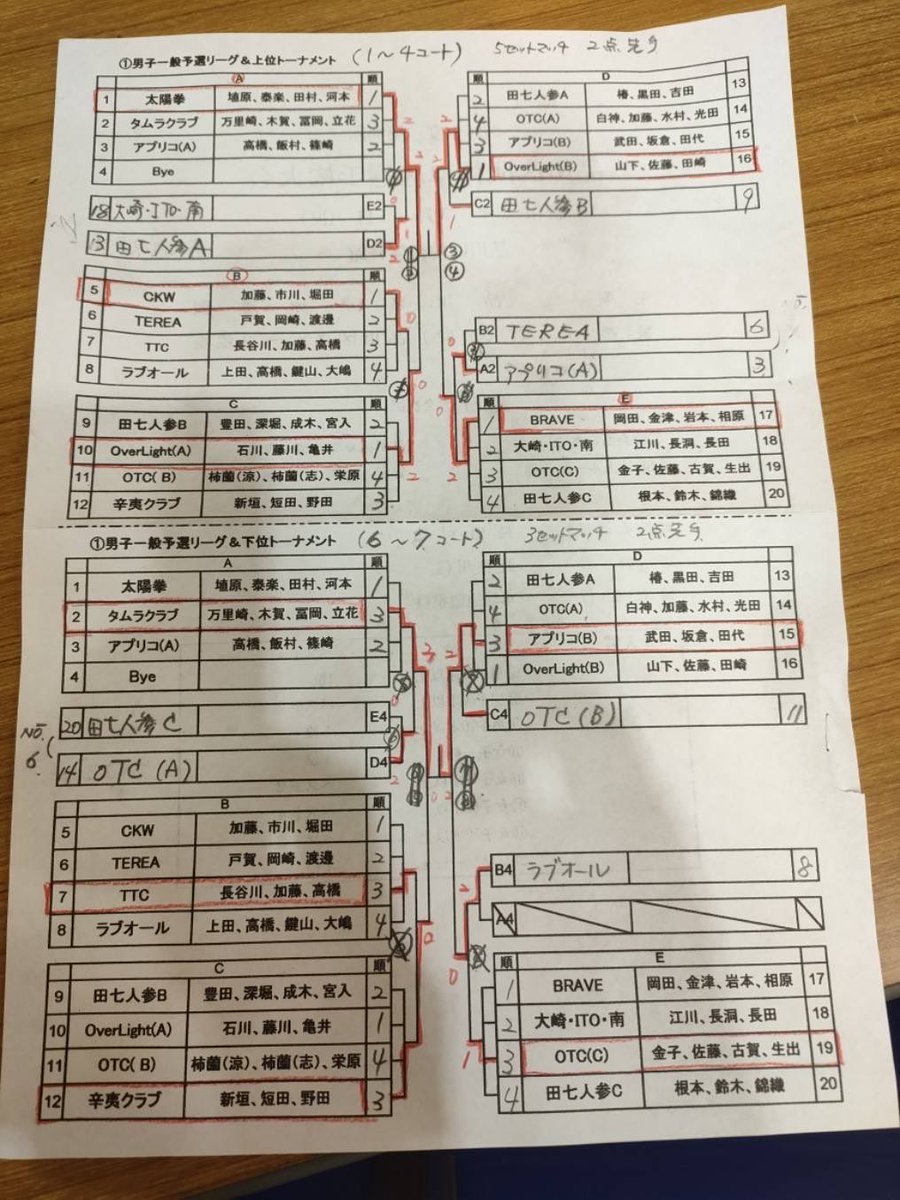 ①男子一般予選リーグ&上位トーナメント (1～4コート) 5セットマッチ 2点先手
A 順
1 太陽拳 埴原、泰楽、田村、河本 1
2 タムラクラブ 万里崎、木賀、冨岡、立花 3
3 アプリコ(A) 高橋、飯村、篠崎 2
4 Bye
18 大崎・ITO・南 E2
13 田七人参A D2
B 順
5 CKW 加藤、市川、堀田 1
6 TEREA 戸賀、岡崎、渡邊 2
7 TTC 長谷川、加藤、高橋 3
8 ラブオール 上田、高橋、鍵山、大嶋 4
C 順
9 田七人参B 豊田、深堀、成木、宮入 2
10 OverLight(A) 石川、藤川、亀井 1
11 OTC( B) 柿薗(涼)、柿薗(志)、栄原 4
12 辛夷クラブ 新垣、短田、野田 3
順 D
2 田七人参A 椿、黒田、吉田 13
4 OTC(A) 白神、加藤、水村、光田 14
3 アプリコ(B) 武田、坂倉、田代 15
1 OverLight(B) 山下、佐藤、田崎 16
C2 田七人参B 9
③
④
B2 TEREA 6
A2 アプリコ(A) 3
順 E
1 BRAVE 岡田、金津、岩本、相原 17
2 大崎・ITO・南 江川、長洞、長田 18
3 OTC(C) 金子、佐藤、古賀、生出 19
4 田七人参C 根本、鈴木、錦織 20
①男子一般予選リーグ&下位トーナメント (6～7コート) 3セットマッチ 2点先手
A 順
1 太陽拳 埴原、泰楽、田村、河本 1
2 タムラクラブ 万里崎、木賀、冨岡、立花 3
3 アプリコ(A) 高橋、飯村、篠崎 2
4 Bye
20 田七人参C E4
No.
6
14 OTC (A) D4
B 順
5 CKW 加藤、市川、堀田 1
6 TEREA 戸賀、岡崎、渡邊 2
7 TTC 長谷川、加藤、高橋 3
8 ラブオール 上田、高橋、鍵山、大嶋 4
C 順
9 田七人参B 豊田、深堀、成木、宮入 2
10 OverLight(A) 石川、藤川、亀井 1
11 OTC( B) 柿薗(涼)、柿薗(志)、栄原 4
12 辛夷クラブ 新垣、短田、野田 3
順 D
2 田七人参A 椿、黒田、吉田 13
4 OTC(A) 白神、加藤、水村、光田 14
3 アプリコ(B) 武田、坂倉、田代 15
1 OverLight(B) 山下、佐藤、田崎 16
C4 OTC (B) 11
B4 ラブオール 8
A4
順 E
1 BRAVE 岡田、金津、岩本、相原 17
2 大崎・ITO・南 江川、長洞、長田 18
3 OTC(C) 金子、佐藤、古賀、生出 19
4 田七人参C 根本、鈴木、錦織 20